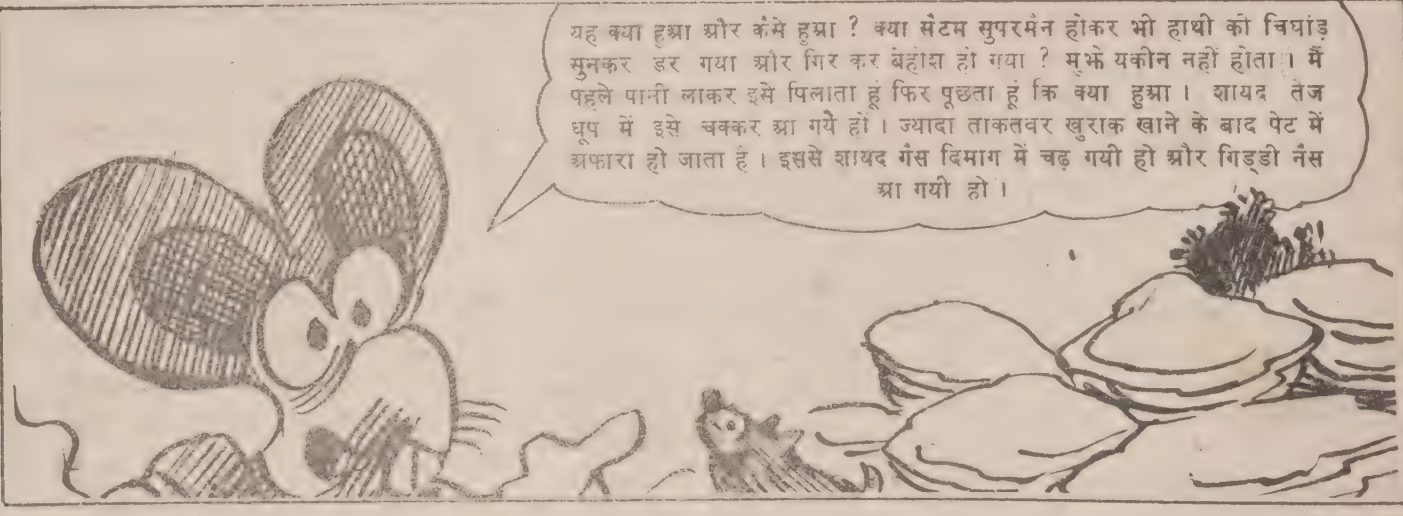 यह क्या हुआ और कैसे हुआ ? क्या सैटम सुपरमैन होकर भी हाथी की चिघांड़
सुनकर डर गया और गिर कर बेहोश हो गया ? मुझे यकीन नहीं होता । मैं
पहले पानी लाकर इसे पिलाता हूं फिर पूछता हूं कि क्या हुआ । शायद तेज
धूप में इसे चक्कर आ गये हों । ज्यादा ताकतवर खुराक खाने के बाद पेट में
अफारा हो जाता है । इससे शायद गैस दिमाग में चढ़ गयी हो और गिड्डी नैस
आ गयी हो ।